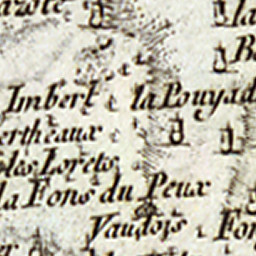 la
Imbert la Pouyad
ertheaux
les Lorets
la Fons du Peux
Vaudois Fon